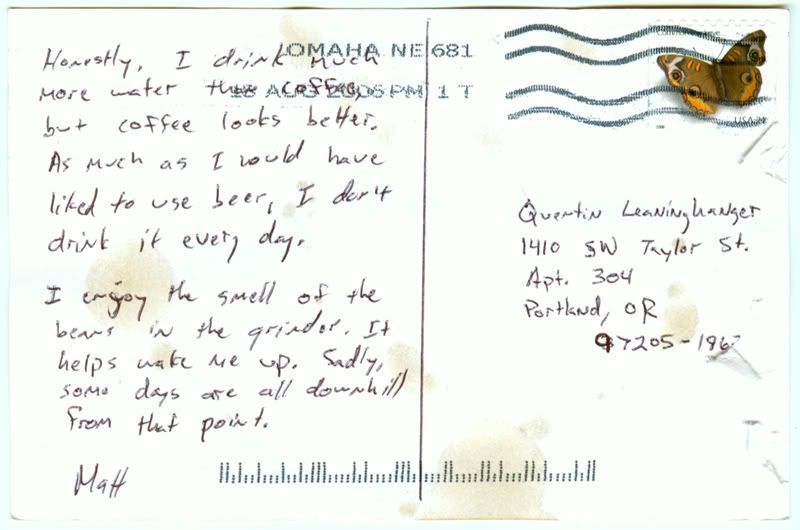 Honestly, I drink much
more water than coffee,
but coffee looks better.
As much as I would have
liked to use beer, I don't
drink it every day.
I enjoy the smell of the
beans in the grinder. It
helps wake me up. Sadly,
some days are all downhill
from that point.
Matt
OMAHA NE 681
18 AUG 2006 PM 1 T
USA 24
Quentin Leaninghanger
1410 SW Taylor St.
Apt. 304
Portland, OR